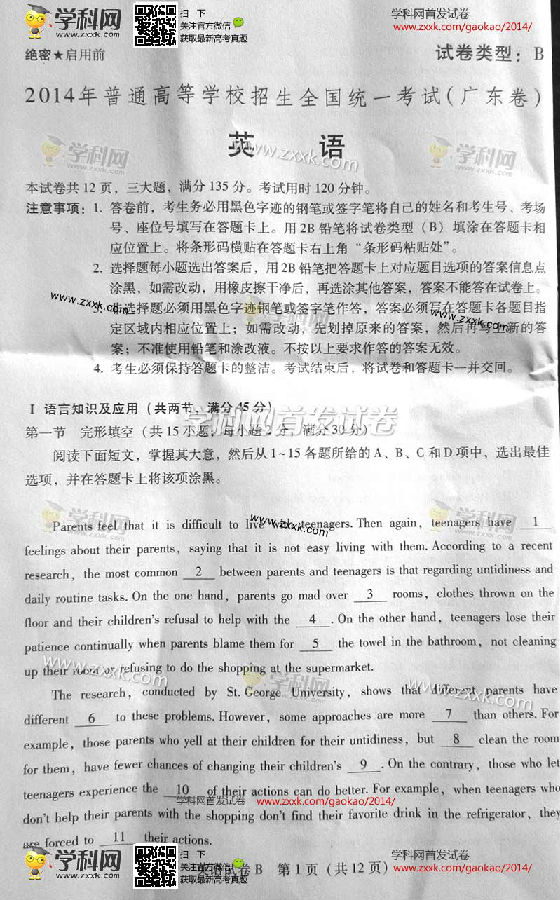 学科网
扫一下
关注官方微信
获取最新高考真题
学科网首发试卷
www.zxxk.com/gaokao/2014/
绝密★启用前
试卷类型：B
2014年普通高等学校招生全国统一考试（广东卷）
英 语
学科网
www.zxxk.com
学科网
本试卷共12页，三大题，满分135分。考试用时120分钟。
注意事项：1. 答卷前，考生务必用黑色字迹的钢笔或签字笔将自己的姓名和考生号、考场
号、座位号填写在答题卡上。用2B铅笔将试卷类型（B）填涂在答题卡相
应位置上。将条形码横贴在答题卡右上角“条形码粘贴处”。
2. 选择题每小题选出答案后，用2B铅笔把答题卡上对应题目选项的答案信息点
涂黑，如需改动，用橡皮擦干净后，再选涂其他答案，答案不能答在试卷上。
www.zxxk.com
非选择题必须用黑色字迹钢笔或签字笔作答，答案必须写在答题卡各题目指
定区域内相应位置上；如需改动，先划掉原来的答案，然后再写上新的答
www.zxxk.com
案；不准使用铅笔和涂改液。不按以上要求作答的答案无效。
4. 考生必须保持答题卡的整洁。考试结束后，将试卷和答题卡一并交回。
Ⅰ 语言知识及应用（共两节，满分45分）
学科网首发试卷
第一节 完形填空（共15小题；每小题2分，满分30分）
阅读下面短文，掌握其大意，然后从1~15各题所给的A、B、C和D项中，选出最佳
选项，并在答题卡上将该项涂黑。
学科网
www.zxxk.com
学科网
Parents feel that it is difficult to live with teenagers. Then again, teenagers have 1
feelings about their parents, saying that it is not easy living with them. According to a recent
research, the most common 2 between parents and teenagers is that regarding untidiness and
daily routine tasks. On the one hand, parents go mad over 3 rooms, clothes thrown on the
floor and their children's refusal to help with the 4 . On the other hand, teenagers lose their
patience continually when parents blame them for 5 the towel in the bathroom, not cleaning
up their room or refusing to do the shopping at the supermarket.
www.zxxk.com
学科网
www.zxxk.com
The research, conducted by St. George University, shows that different parents have
different 6 to these problems. However, some approaches are more 7 than others. For
example, those parents who yell at their children for their untidiness, but 8 clean the room
for them, have fewer chances of changing their children's 9 . On the contrary, those who let
teenagers experience the 10 of their actions can do better. For example, when teenagers who
学科网首发试卷
www.zxxk.com/gaokao/2014/
don't help their parents with the shopping don't find their favorite drink in the refrigerator, they
are forced to 11 their actions.
学科网
扫一下
关注官方微信
获取最新高考真题
试卷B 第1页（共12页）
学科网首发试卷
www.zxxk.com/gaokao/2014/